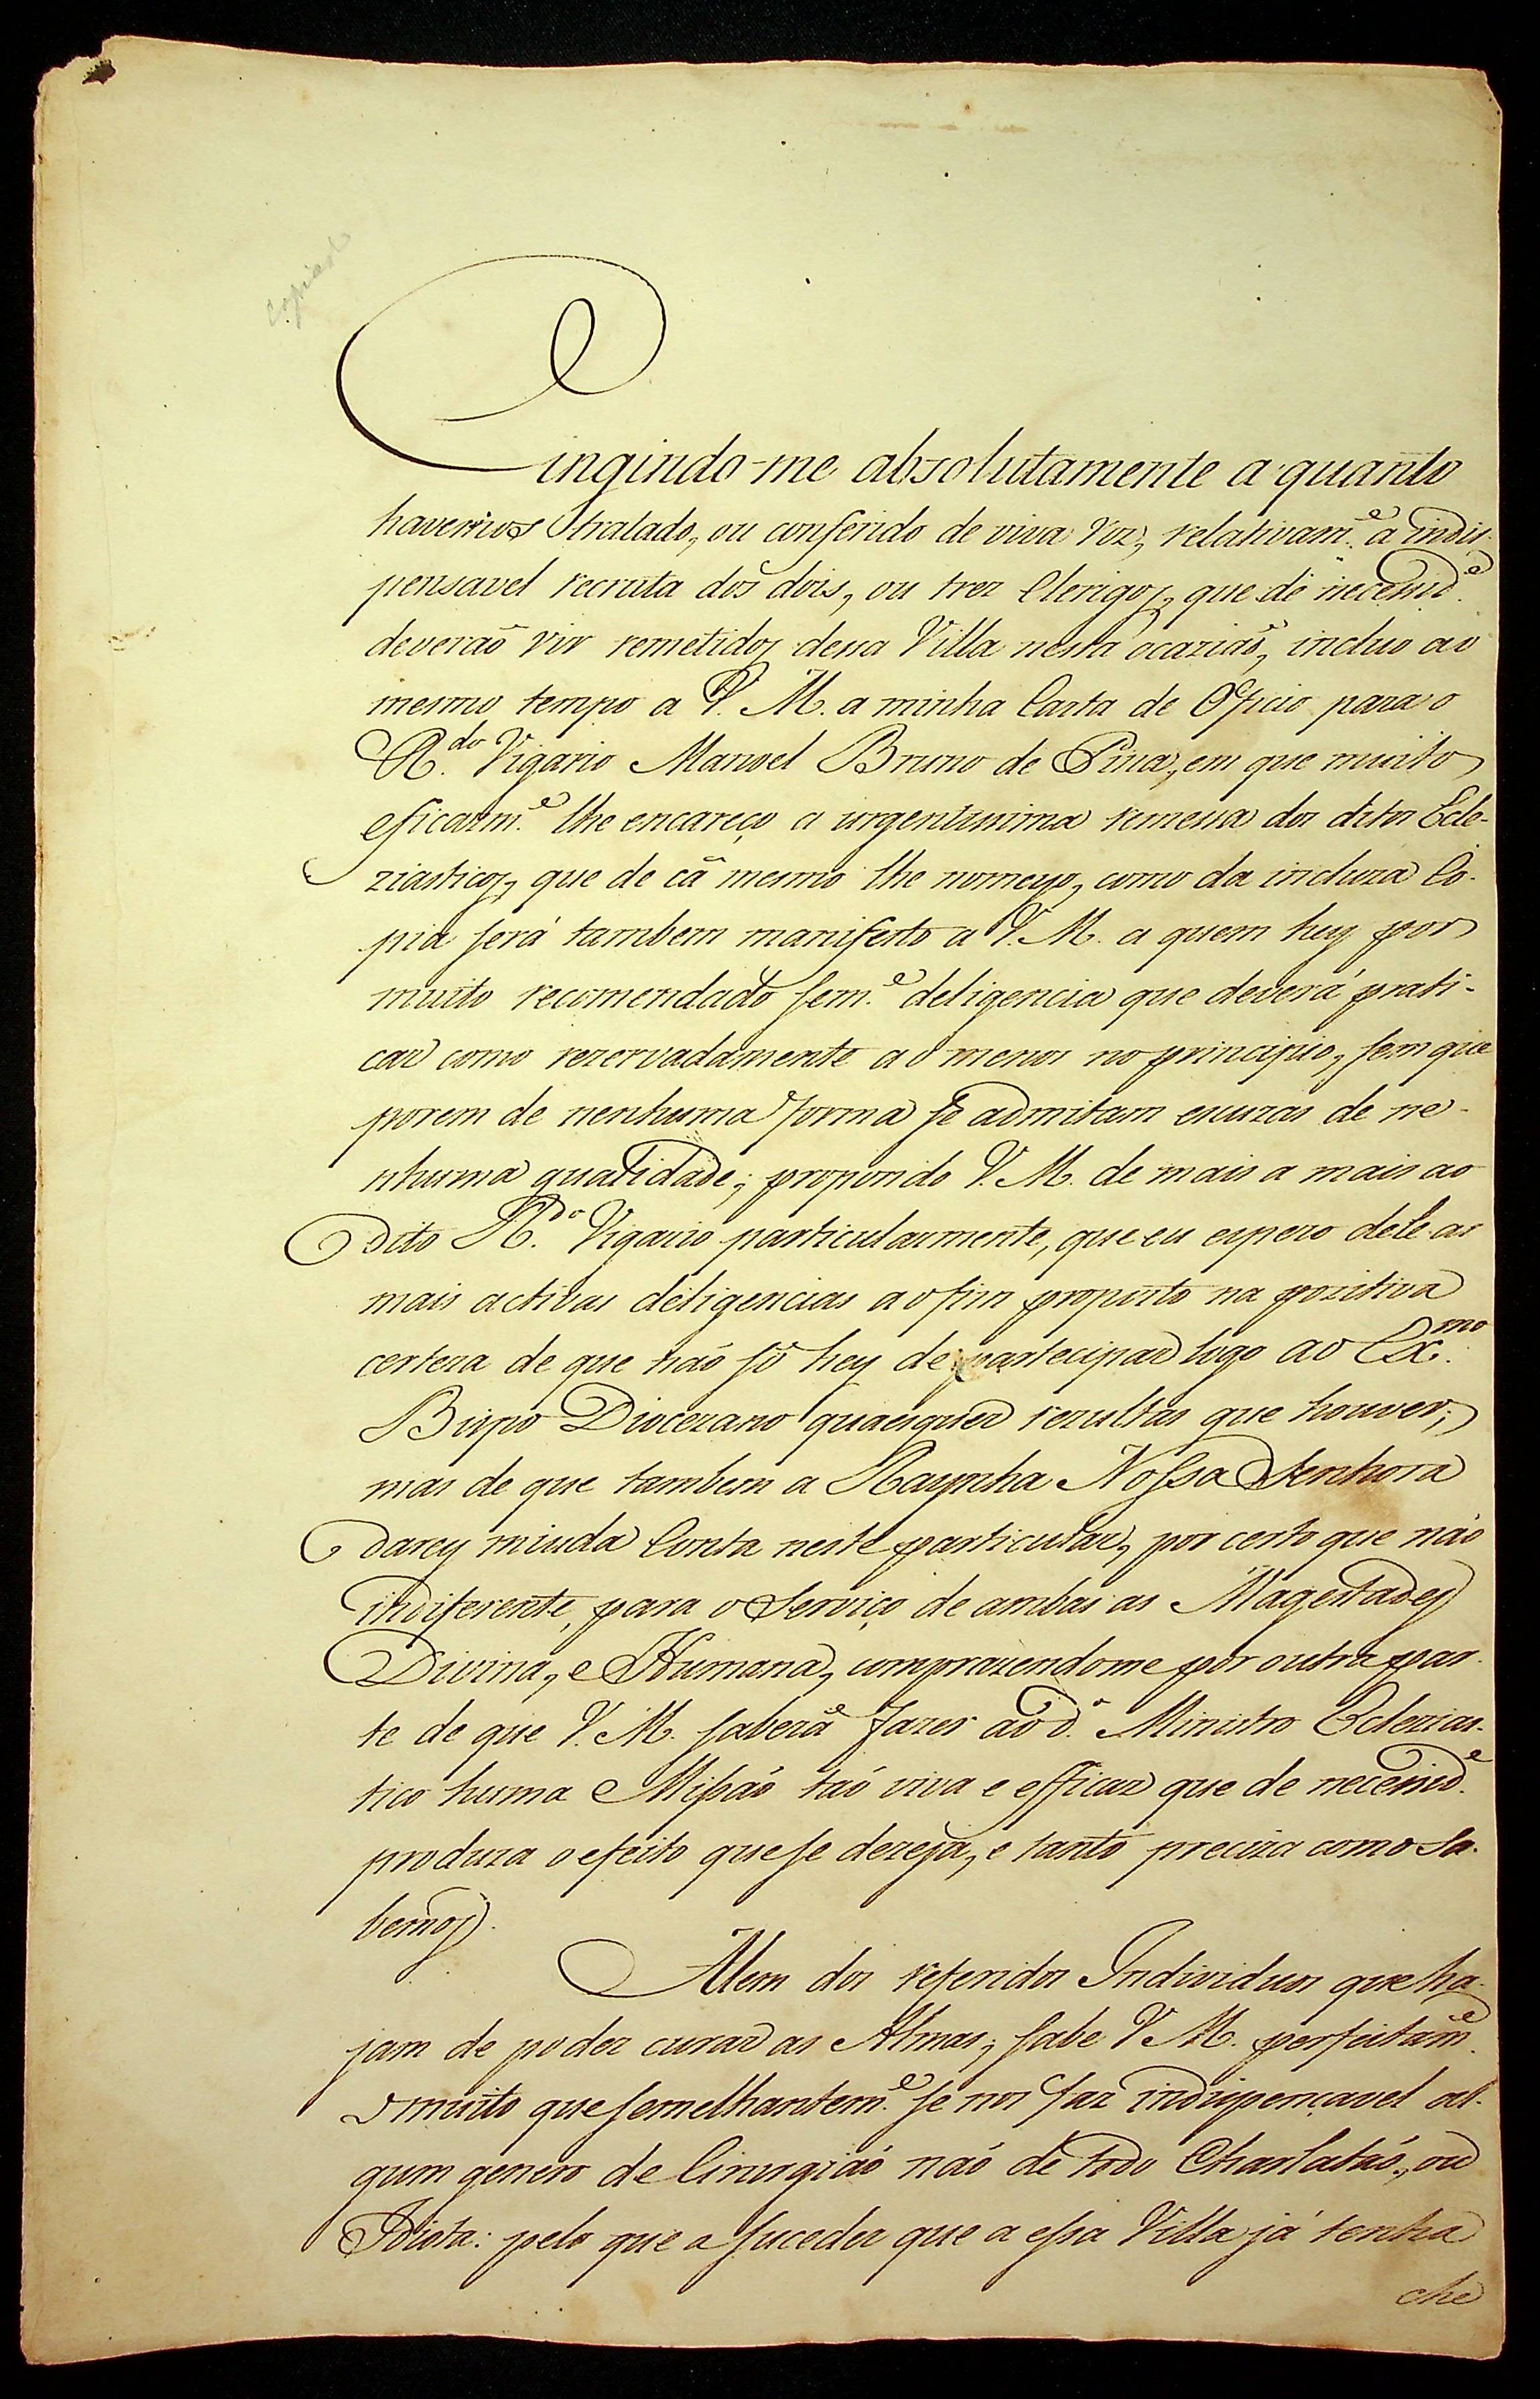 Copiado
Cingindo-me absolutamente a quanto
havemos tratado, ou conferido de viva voz, relativam.e a indis-
pensavel recruta dos dois, ou trez Clerigos, que de necessid.e
deveraõ vir remetidos dessa Villa nesta ocaziaõ, incluo ao
mesmo tempo a V. M. a minha Carta de Oficio para o
R.do Vigario Manoel Bruno de Pina, em que muito
eficazm.e lhe encareço a urgentissima remessa dos ditos Ecle-
ziasticos, que de cá mesmo lhe nomeyo, como da incluza Co-
pia será tambem manifesto a V. M. a quem hey por
muito recomendado sem.e deligencia que deverá prati-
car como rezervadamente ao menos no principio, sem que
porem de nenhuma forma se admitam escuzas de ne-
nhuma qualidade; propondo V. M. de mais a mais ao
dito R.do Vigario particularmente, que eu espero dele as
mais activas deligencias ao fim proposto na pozitiva
certeza de que não só hey de partecipar logo ao Ex.mo
Bispo Diocezano quaesquer rezultas que houver;
mas de que tambem a Raynha Nossa Senhora
darey miuda Conta neste particular, por certo que não
indiferente, para o Serviço de ambas as Magestades
Divina, e Humana, comprazendome por outra par-
te de que V. M. saberá fazer ao d.o Ministro Eclezias-
tico huma Missão taõ viva e efficaz que de necessid.e
produza o efeito que se dezeja, e tanto preciza como sa-
bemos.
Alem dos referidos Individuos que ha-
jam de poder curar as Almas; sabe V. M. perfeitam.e
o muito que semelhantem.e se nos faz indispençavel al-
gum genero de Cirurgiaõ náo de todo Charlataõ, ou
Idiota: pelo que a suceder que a essa Villa já tenha
che